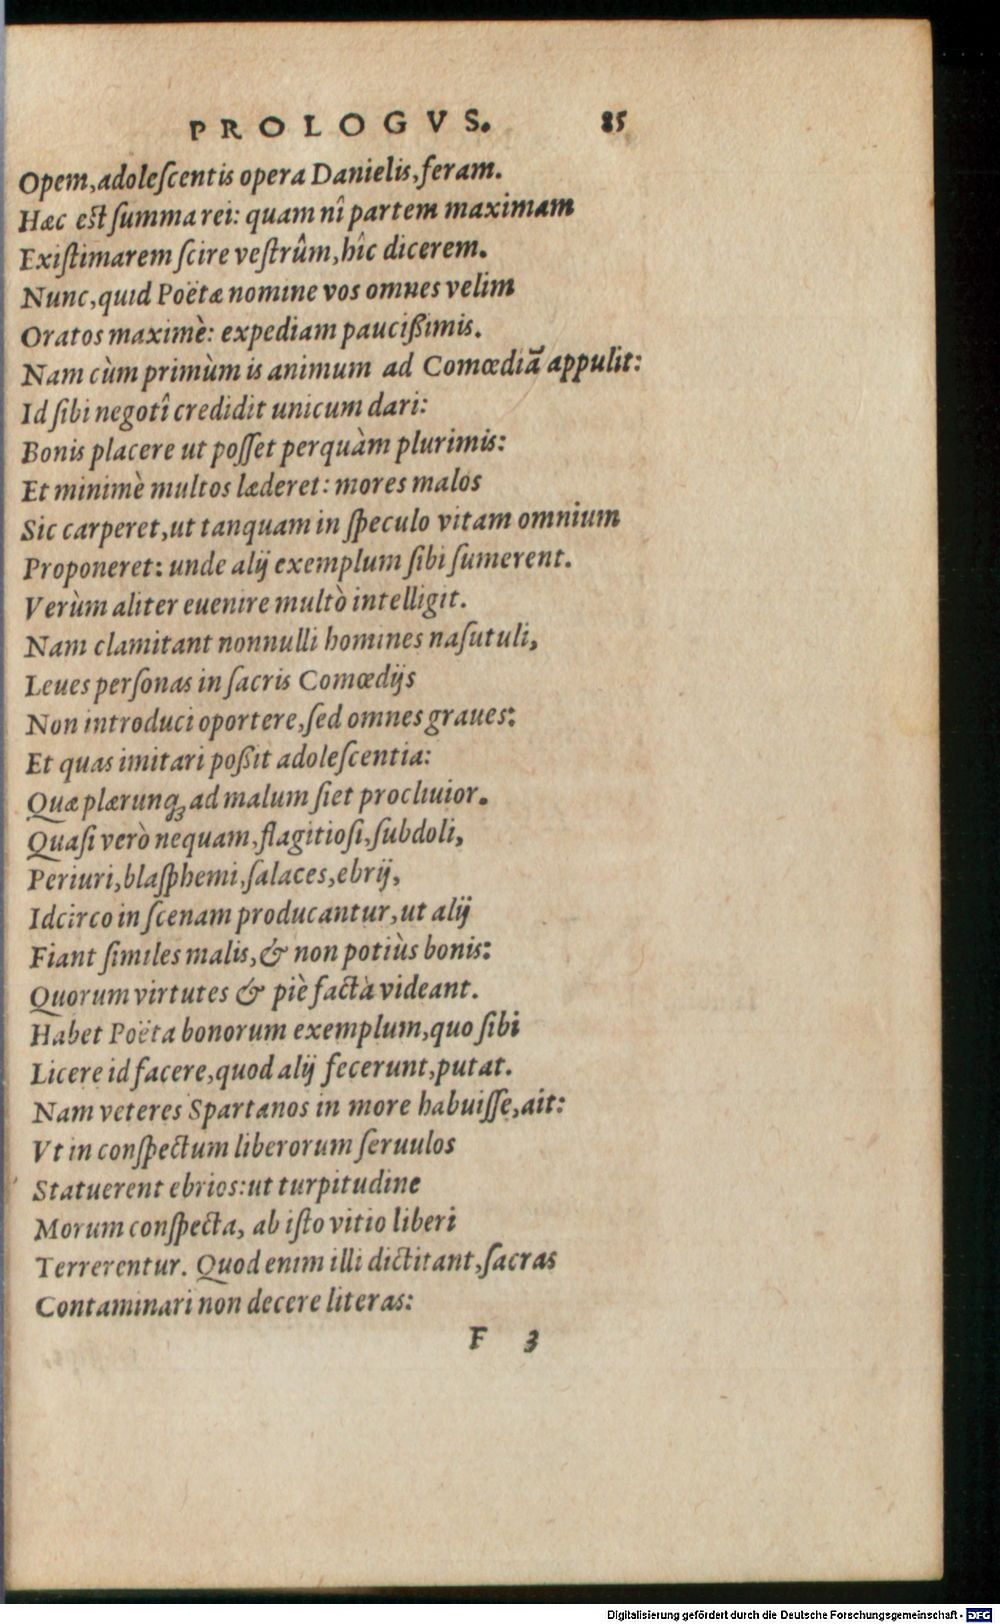 PROLOGVS. 85
Opem, adoleſcentis opera Danielis, feram.
Hæc eſt ſumma rei: quam nî partem maximam
Exiſtimarem ſcire veſtrûm, hîc dicerem.
Nunc, quid Poëtæ nomine vos omnes velim
Oratos maximè: expediam paucißimis.
Nam cùm primùm is animum ad Comœdiã appulit:
Id ſibi negotî credidit unicum dari:
Bonis placere ut poſſet perquàm plurimis:
Et minimè multos læderet: mores malos
Sic carperet, ut tanquam in ſpeculo vitam omnium
Proponeret: unde alij exemplum ſibi ſumerent.
Verùm aliter euenire multò intelligit.
Nam clamitant nonnulli homines naſutuli,
Leues perſonas in ſacris Comœdijs
Non introduci oportere, ſed omnes graues:
Et quas imitari poßit adoleſcentia:
Quæ plærunq; ad malum ſiet procliuior.
Quaſi verò nequam, flagitioſi, ſubdoli,
Periuri, blaſphemi, ſalaces, ebrij,
Idcirco in ſcenam producantur, ut alij
Fiant ſimiles malis, & non potiùs bonis:
Quorum virtutes & piè facta videant.
Habet Poëta bonorum exemplum, quo ſibi
Licere id facere, quod alij fecerunt, putat.
Nam veteres Spartanos in more habuiſſe, ait:
Vt in conſpectum liberorum ſeruulos
Statuerent ebrios: ut turpitudine
Morum conſpecta, ab iſto vitio liberi
Terrerentur. Quod enim illi dictitant, ſacras
Contaminari non decere literas:
F 3
Digitalisierung gefördert durch die Deutsche Forschungsgemeinschaft - DFG